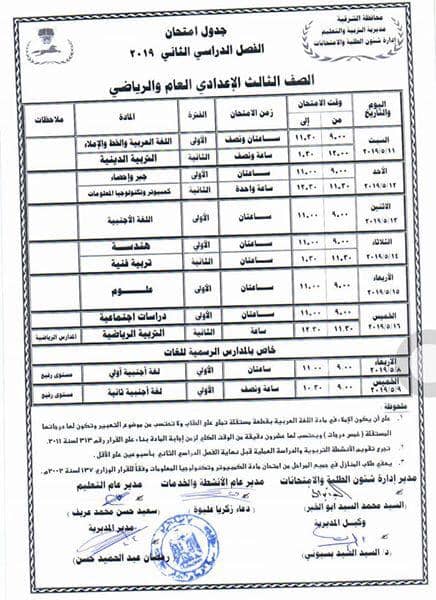 محافظة الشرقية
مديرية التربية والتعليم
إدارة شئون الطلبة والامتحانات
جدول امتحان
الفصل الدراسي الثاني ٢٠١٩
الصف الثالث الإعدادي العام والرياضي
اليوم والتاريخ وقت الامتحان من إلى زمن الامتحان الفترة المادة ملاحظات
السبت ٢٠١٩/٥/١١ ٩.٠٠ ١١.٣٠ ساعتان ونصف الأولى اللغة العربية والخط والإملاء
١٢.٠٠ ١.٣٠ ساعة ونصف الثانية التربية الدينية
الأحد ٢٠١٩/٥/١٢ ٩.٠٠ ١١.٠٠ ساعتان الأولى جبر وإحصاء
١١.٣٠ ١٢.٣٠ ساعة واحدة الثانية كمبيوتر وتكنولوجيا المعلومات
الاثنين ٢٠١٩/٥/١٣ ٩.٠٠ ١١.٠٠ ساعتان الأولى اللغة الأجنبية
الثلاثاء ٢٠١٩/٥/١٤ ٩.٠٠ ١١.٠٠ ساعتان الأولى هندسة
١١.٣٠ ١.٣٠ ساعتان الثانية تربية فنية
الأربعاء ٢٠١٩/٥/١٥ ٩.٠٠ ١١.٠٠ ساعتان الأولى علوم
الخميس ٢٠١٩/٥/١٦ ٩.٠٠ ١١.٠٠ ساعتان الأولى دراسات اجتماعية
١١.٣٠ ١٢.٣٠ ساعة الثانية التربية الرياضية المدارس الرياضية
خاص بالمدارس الرسمية للغات
الأربعاء ٢٠١٩/٥/٨ ٩.٠٠ ١١.٠٠ ساعتان الأولى لغة أجنبية أولي مستوى رفيع
الخميس ٢٠١٩/٥/٩ ٩.٠٠ ١٠.٣٠ ساعة ونصف الأولى لغة أجنبية ثانية مستوى رفيع
ملحوظة:
١. على أن يكون الإملاء في مادة اللغة العربية بقطعة مستقلة تملى على الطلاب ولا تحتسب من موضوع التعبير وتكون لها درجاتها
المستقلة (خمس درجات) ويحتسب لها عشرون دقيقة من الوقت الكلي لزمن إجابة المادة بناء على القرار رقم ٣١٣ لسنة ٢٠١١.
٢. تجرى تقويم الأنشطة التربوية والدراسة العملية قبل نهاية الفصل الدراسي الثاني بأسبوعين على الأقل.
٣. يعفى طلاب المنازل في جميع المراحل من امتحان مادة الكمبيوتر وتكنولوجيا المعلومات وفقاً للقرار الوزاري ١٣٧ لسنة ٢٠٠٣م.
مدير إدارة شئون الطلبة والامتحانات مدير عام الأنشطة والخدمات مدير عام التعليم
السيد محمد السيد أبو الخير دعاء زكريا عليوة سعيد حسن محمد عريف
وكيل المديرية مدير المديرية
د/ السيد السيد بسيوني رمضان عبد الحميد حسن